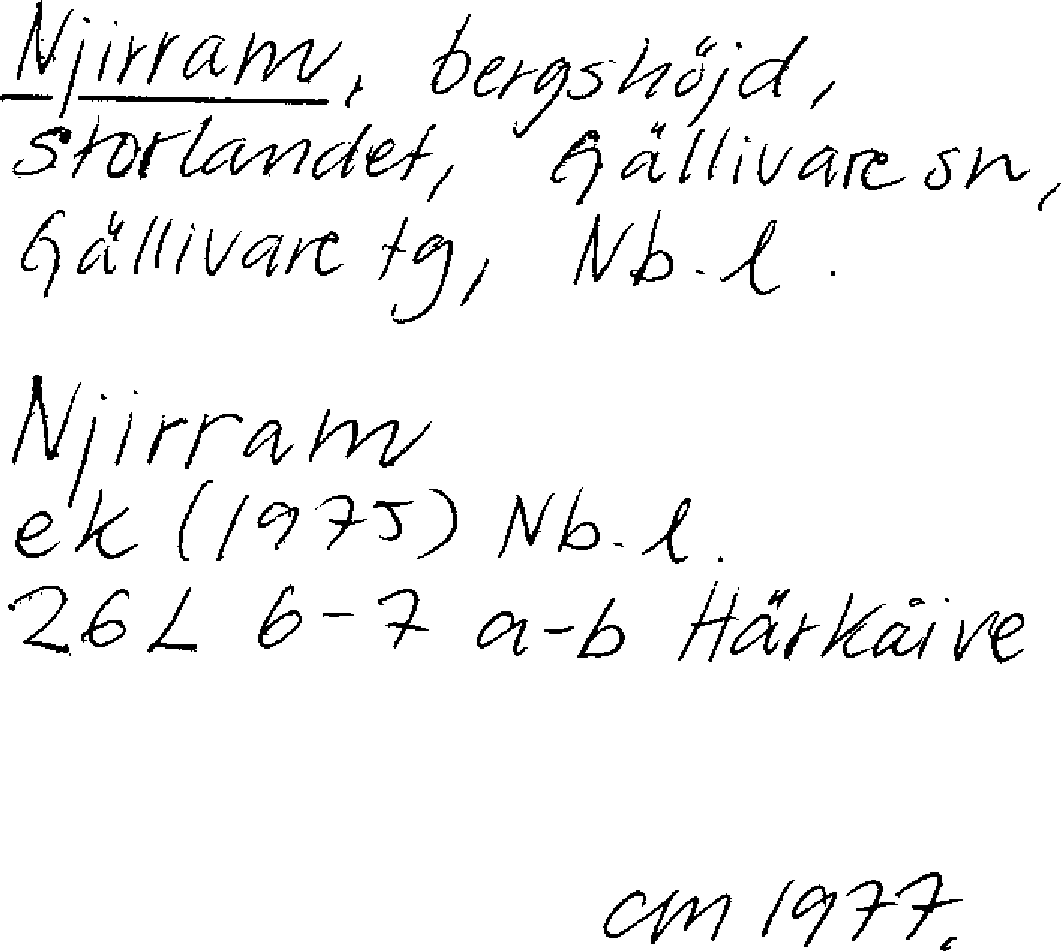 Njirram, bergshöjd,
storlandet, Gällivare sn,
Gällivare tg, Nb. l.
Njirram
ek (1975) Nb. l.
26 L 6-7 a-b Härkåive
cm 1977.